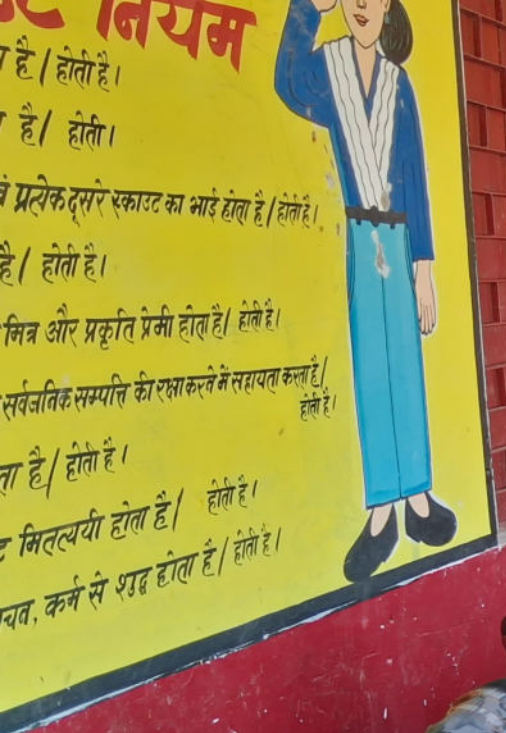 नियम
है / होती है।
है / होती।
प्रत्येक दूसरे स्काउट का भाई होता है / होती है।
है / होती है।
मित्र और प्रकृति प्रेमी होता है / होती है।
सर्वजनिक सम्पत्ति की रक्षा करने में सहायता करता है /
होती है।
है / होती है।
मितत्ययी होता है / होती है।
कर्म से शुद्ध होता है / होती है।